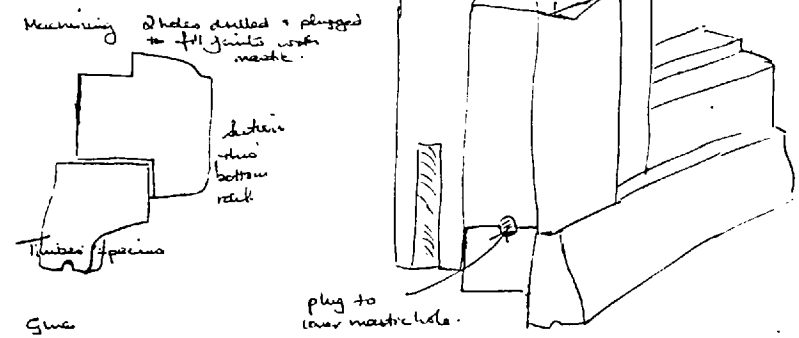 Machining 2 holes drilled & plugged
to fill joints with
mastic.
Section
thro'
bottom
rail.
Timber species
plug to
cover mastic hole.
Glue